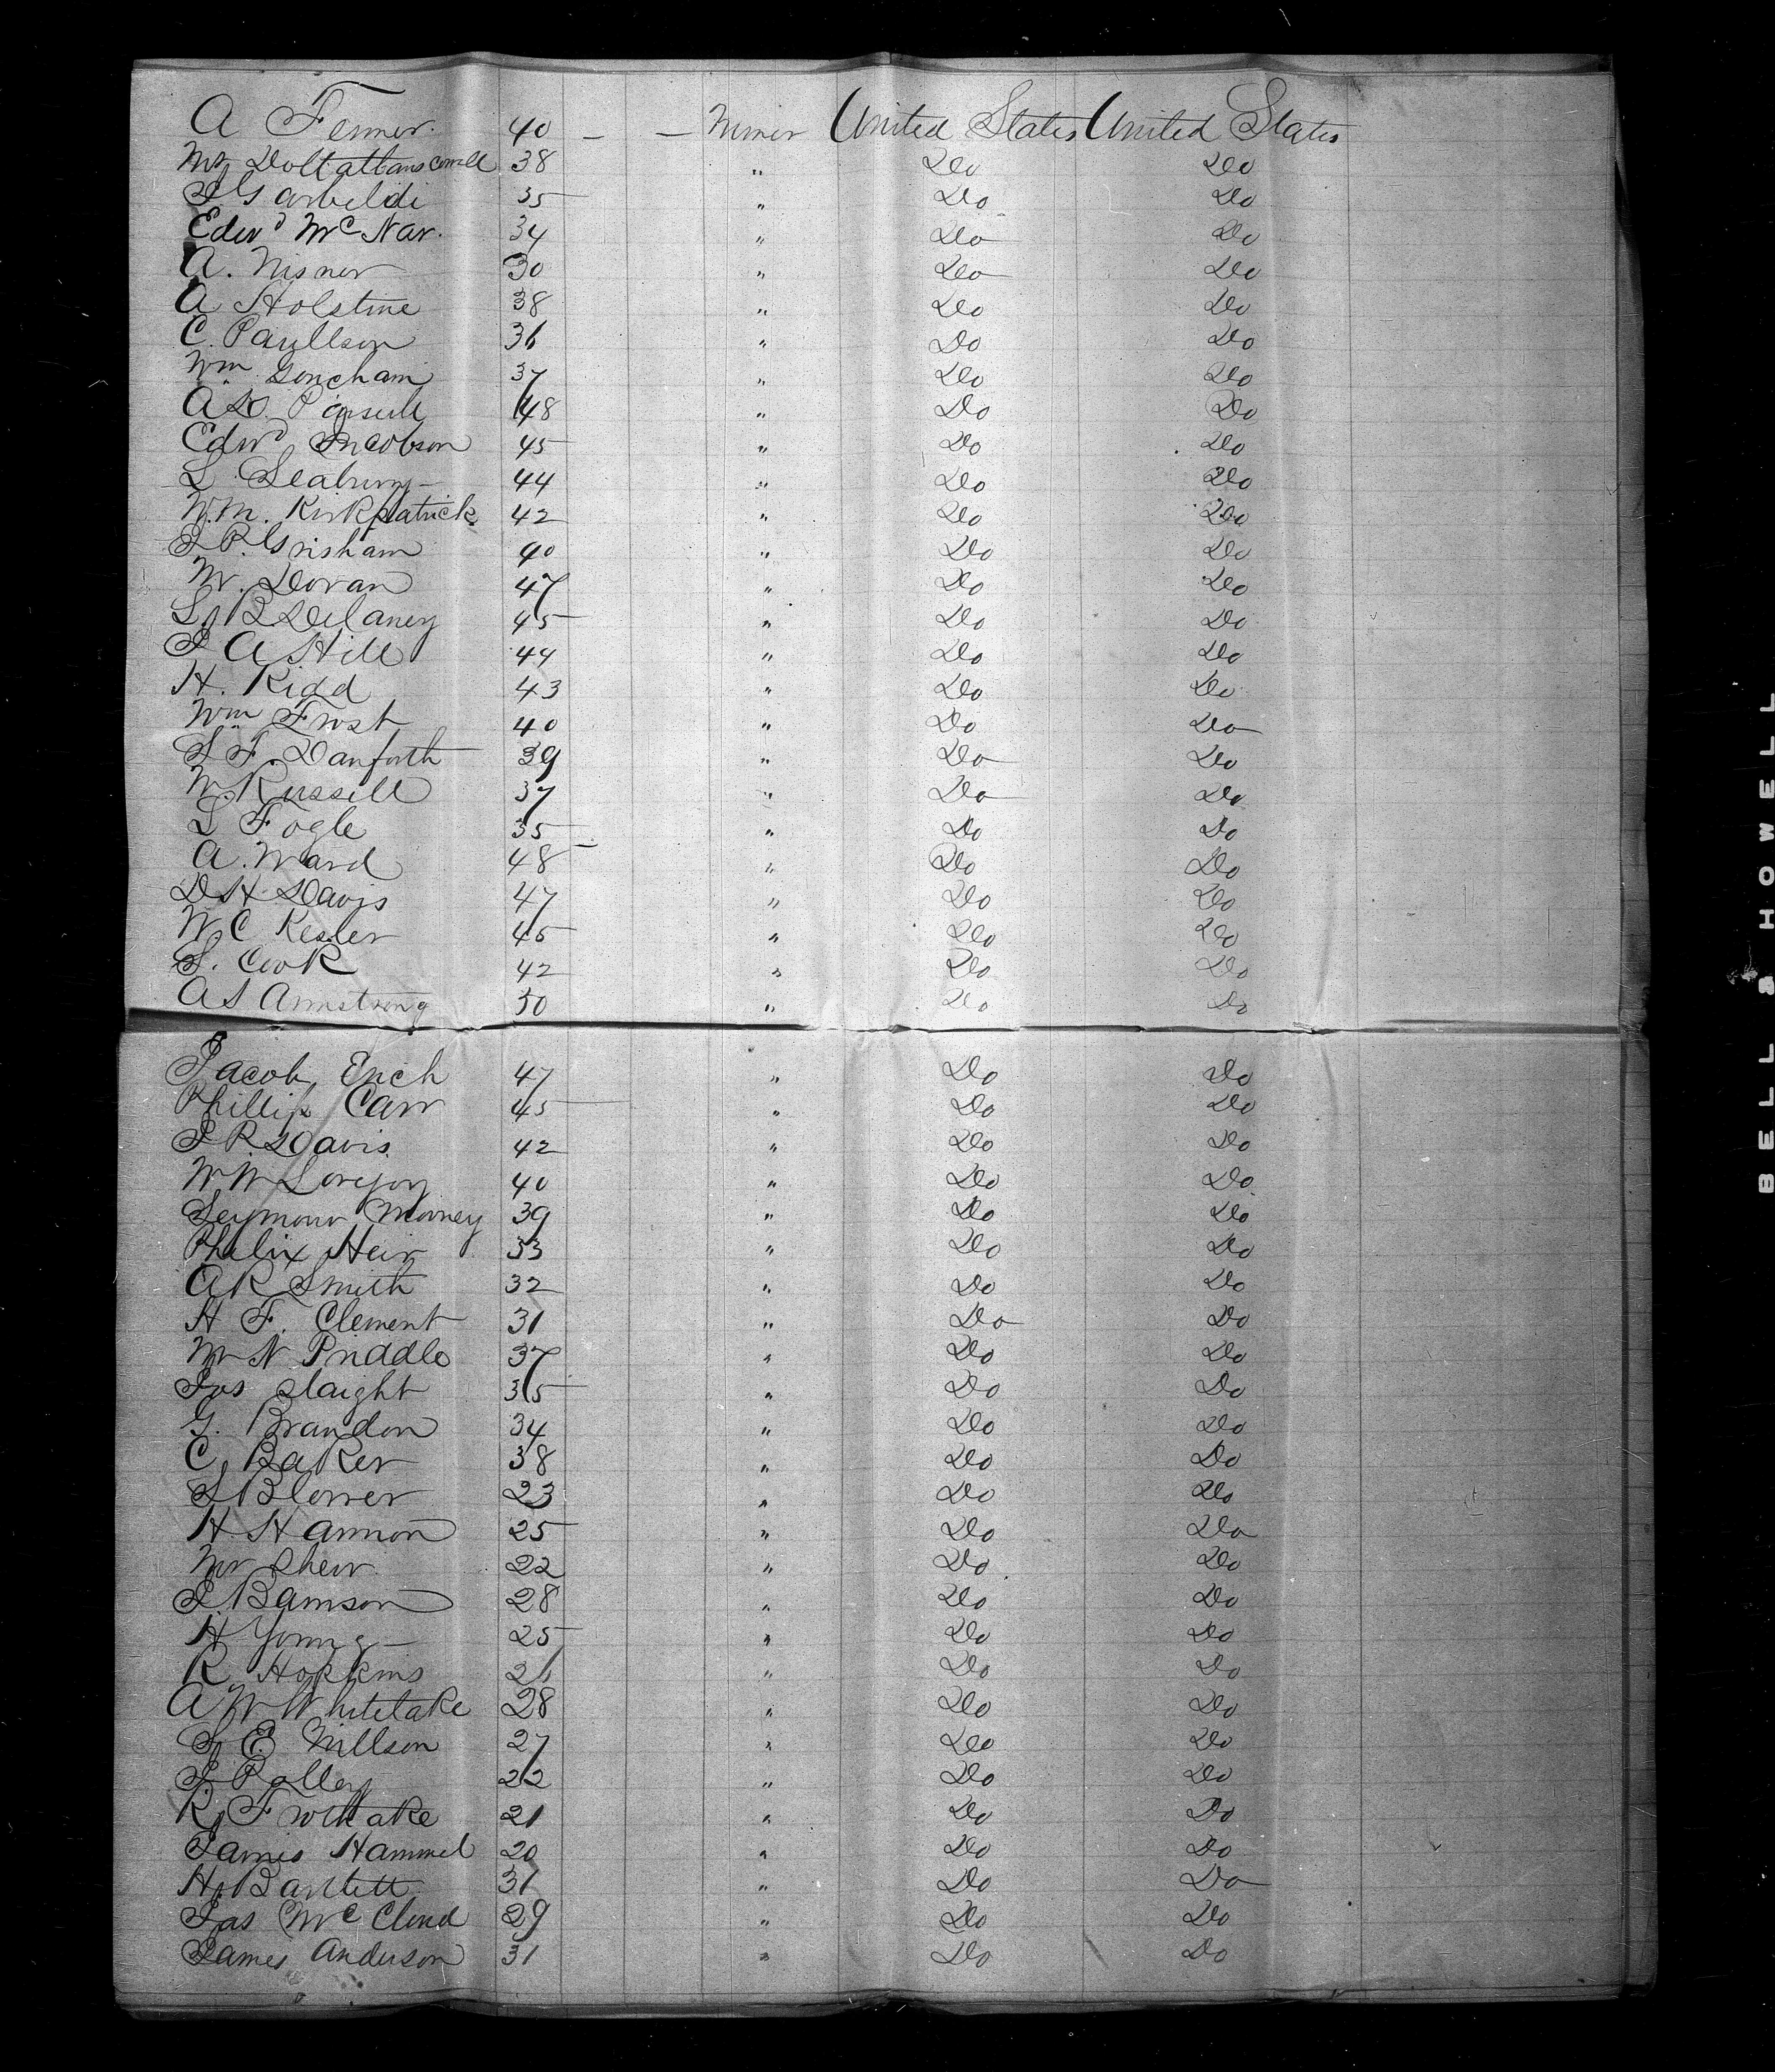 A Fenner 40 — — Miner United States United States
Mr 38 " Do Do
J Garibeldi 35 " Do Do
Edwd McNar. 34 " Do Do
A. Nisner 30 " Do Do
A Holstine 38 " Do Do
C. Paullson 36 " Do Do
Wm Goncham 37 " Do Do
A D. 48 " Do Do
Edwd Jacobson 45 " Do Do
L Seabury 44 " Do Do
W.M. Kirkpatrick 42 " Do Do
J R Grisham 40 " Do Do
M. Doran 47 " Do Do
L. B Delaney 45 " Do Do
J A Hill 44 " Do Do
H. Kidd 43 " Do Do
Wm Frost 40 " Do Do
S F. Danforth 39 " Do Do
W. Russell 37 " Do Do
L Fogle 35 " Do Do
A. Ward 48 " Do Do
D H Davis 47 " Do Do
W C Kesler 45 " Do Do
S. Cook 42 " Do Do
A S Armstrong 50 " Do Do
Jacob Erich 47 " Do Do
Phillip Carr 45 " Do Do
J R. Davis 42 " Do Do
W W Lovejoy 40 " Do Do
Seymour Mooney 39 " Do Do
Phelix Heir 33 " Do Do
A R Smith 32 " Do Do
H F. Clement 31 " Do Do
M N Priddle 37 " Do Do
Jas Slaight 35 " Do Do
G. Brandon 34 " Do Do
C. Baker 38 " Do Do
S Blower 23 " Do Do
H Hannon 25 " Do Do
Mr Sheir 22 " Do Do
J Bamson 28 " Do Do
H Young 25 " Do Do
R. Hopkins 26 " Do Do
A W Whitelake 28 " Do Do
S. E. Millson 27 " Do Do
J Polley 22 " Do Do
R. Frothtake 21 " Do Do
James Hammel 20 " Do Do
H. Bartlett 31 " Do Do
Jas McCloud 29 " Do Do
James Anderson 31 " Do Do
BELL & HOWELL